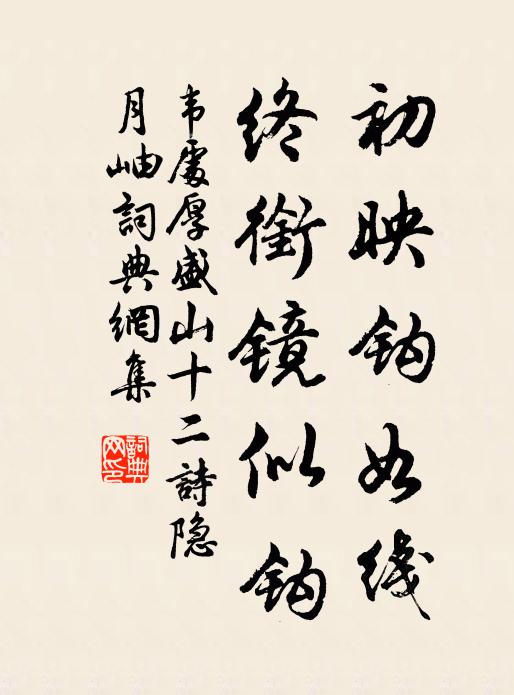 初映钩如线
终衔镜似钩
韦處厚盛山十二詩隐
月岫詞典網集
詞典网印